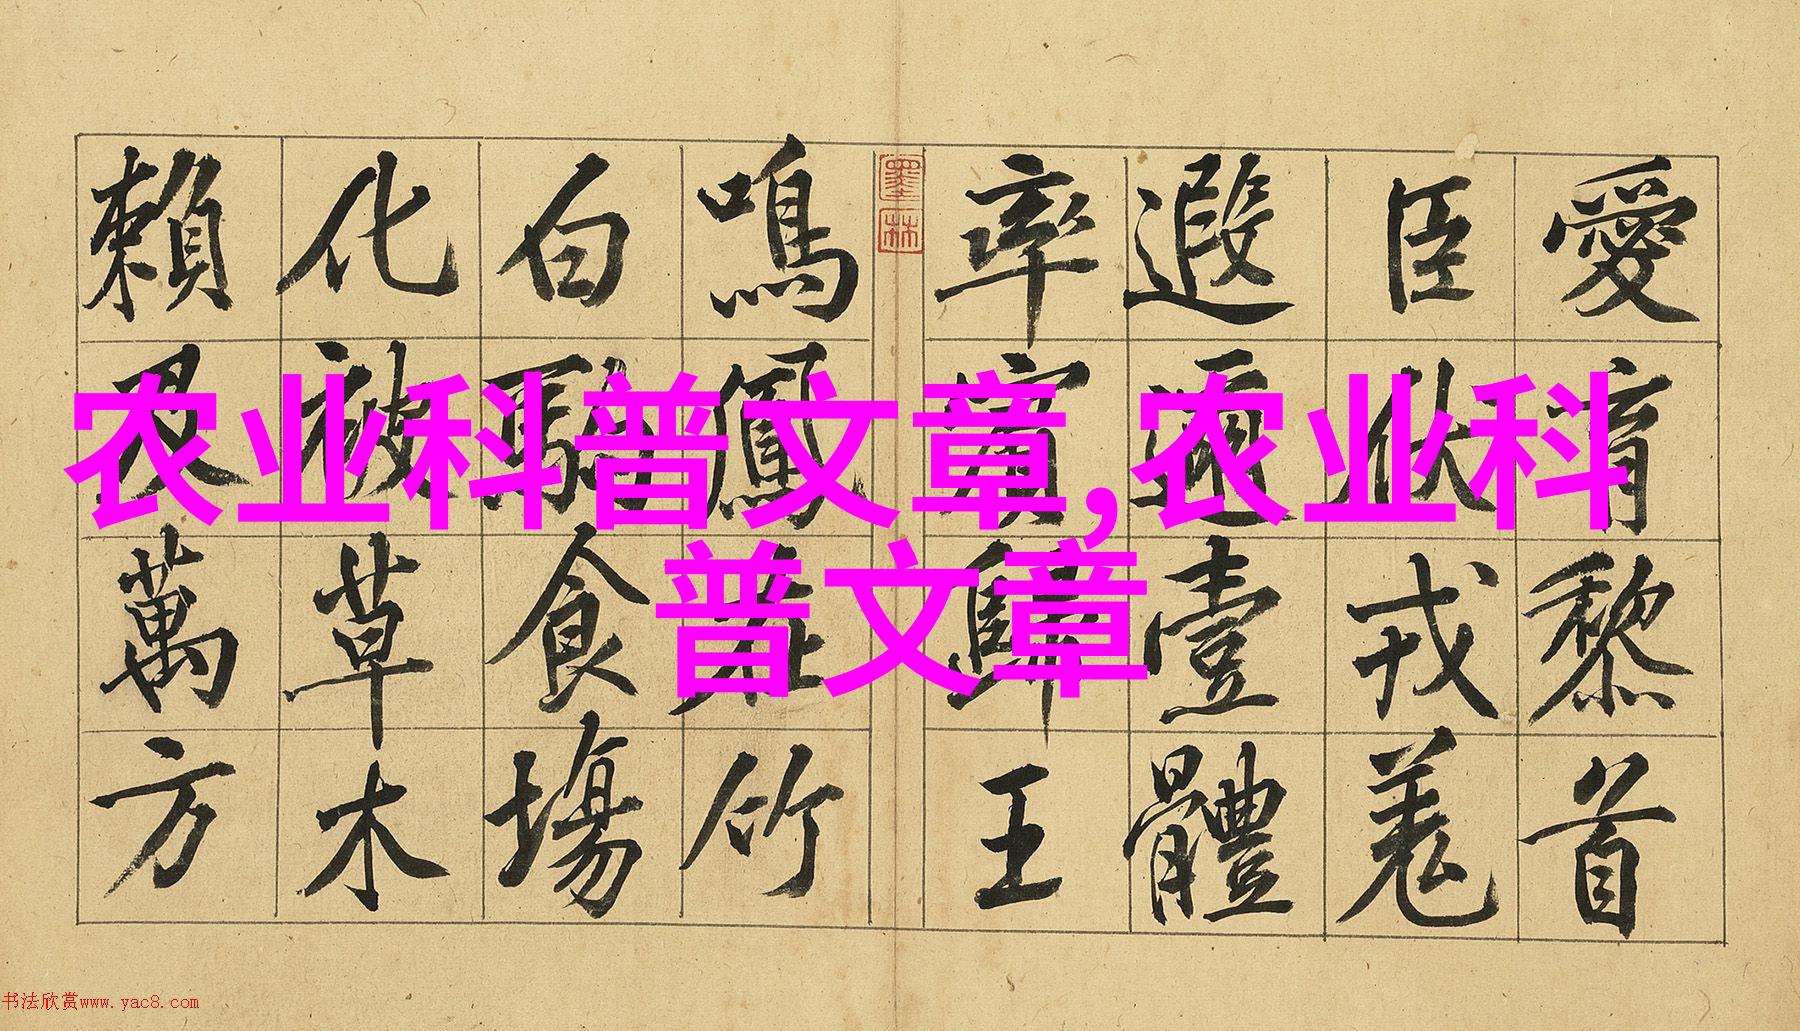 愛育黎首
臣伏戎羌
遐邇壹體
率賓歸王
墨林
鳴鳳在竹
白駒食場
化被草木
賴及萬方
农业科普文章,农业科
普文章
书法欣赏www.yac8.com